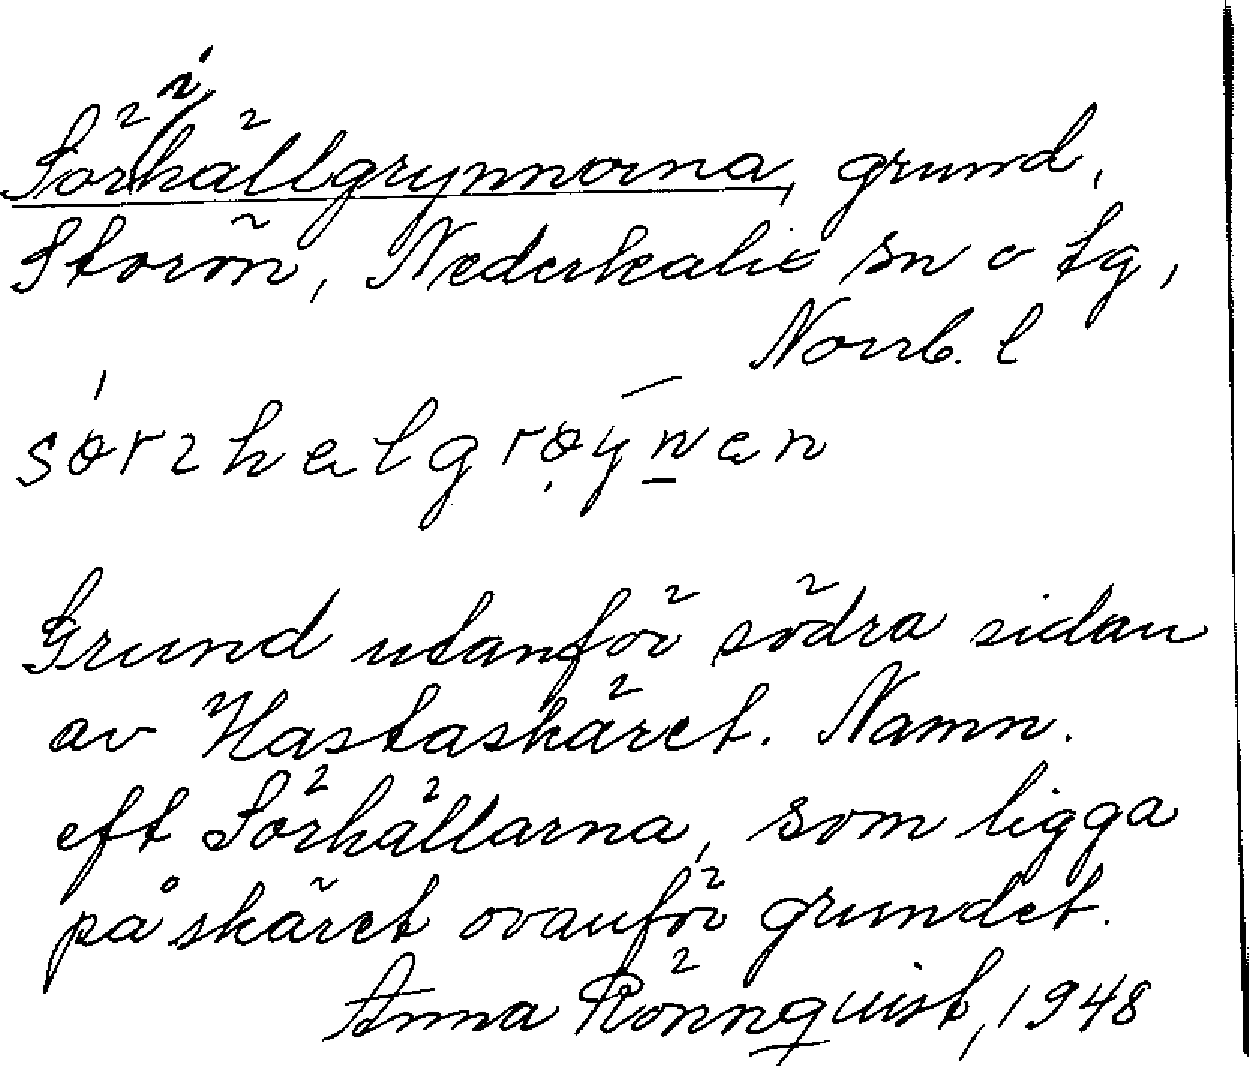 Sörhällgrynnorna, grund,
Storön, Nederkalix sn o tg,
Norrb. l
Grund utanför södra sidan
av Hastaskäret. Namn.
eft Sörhällarna, som ligga
på skäret ovanför grundet.
Anna Rönnquist, 1948